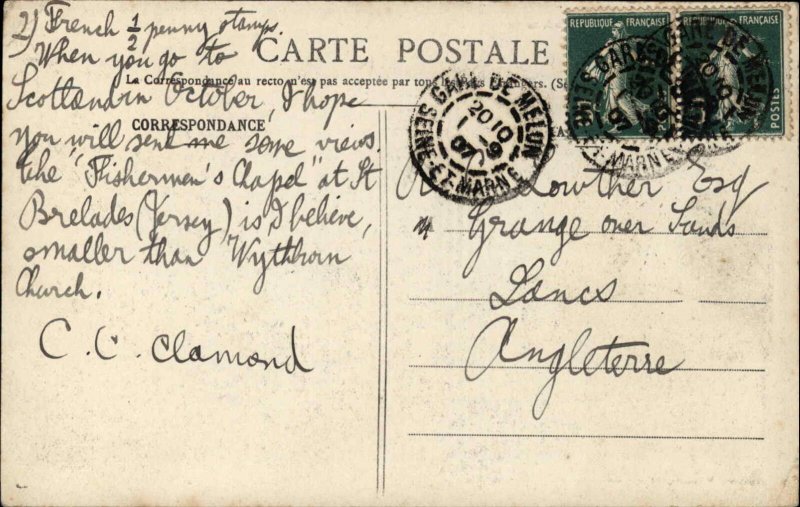 2) French ½ penny stamps.
When you go to
Scotland in October, I hope
you will send me some views.
the "Fishermen's Chapel" at St
Brelades (Jersey) is I believe,
smaller than Wythburn
Church.
C. C. Clamond
CARTE POSTALE
La Correspondance au recto n'est pas acceptée par tous
CORRESPONDANCE
RÉPUBLIQUE FRANÇAISE
RÉPUBLIQUE FRANÇAISE
POSTES
GARE DE MELUN
SEINE-ET-MARNE
20 10
1 -9
07
Lowther Esq
Grange over Sands
Lancs
Angleterre